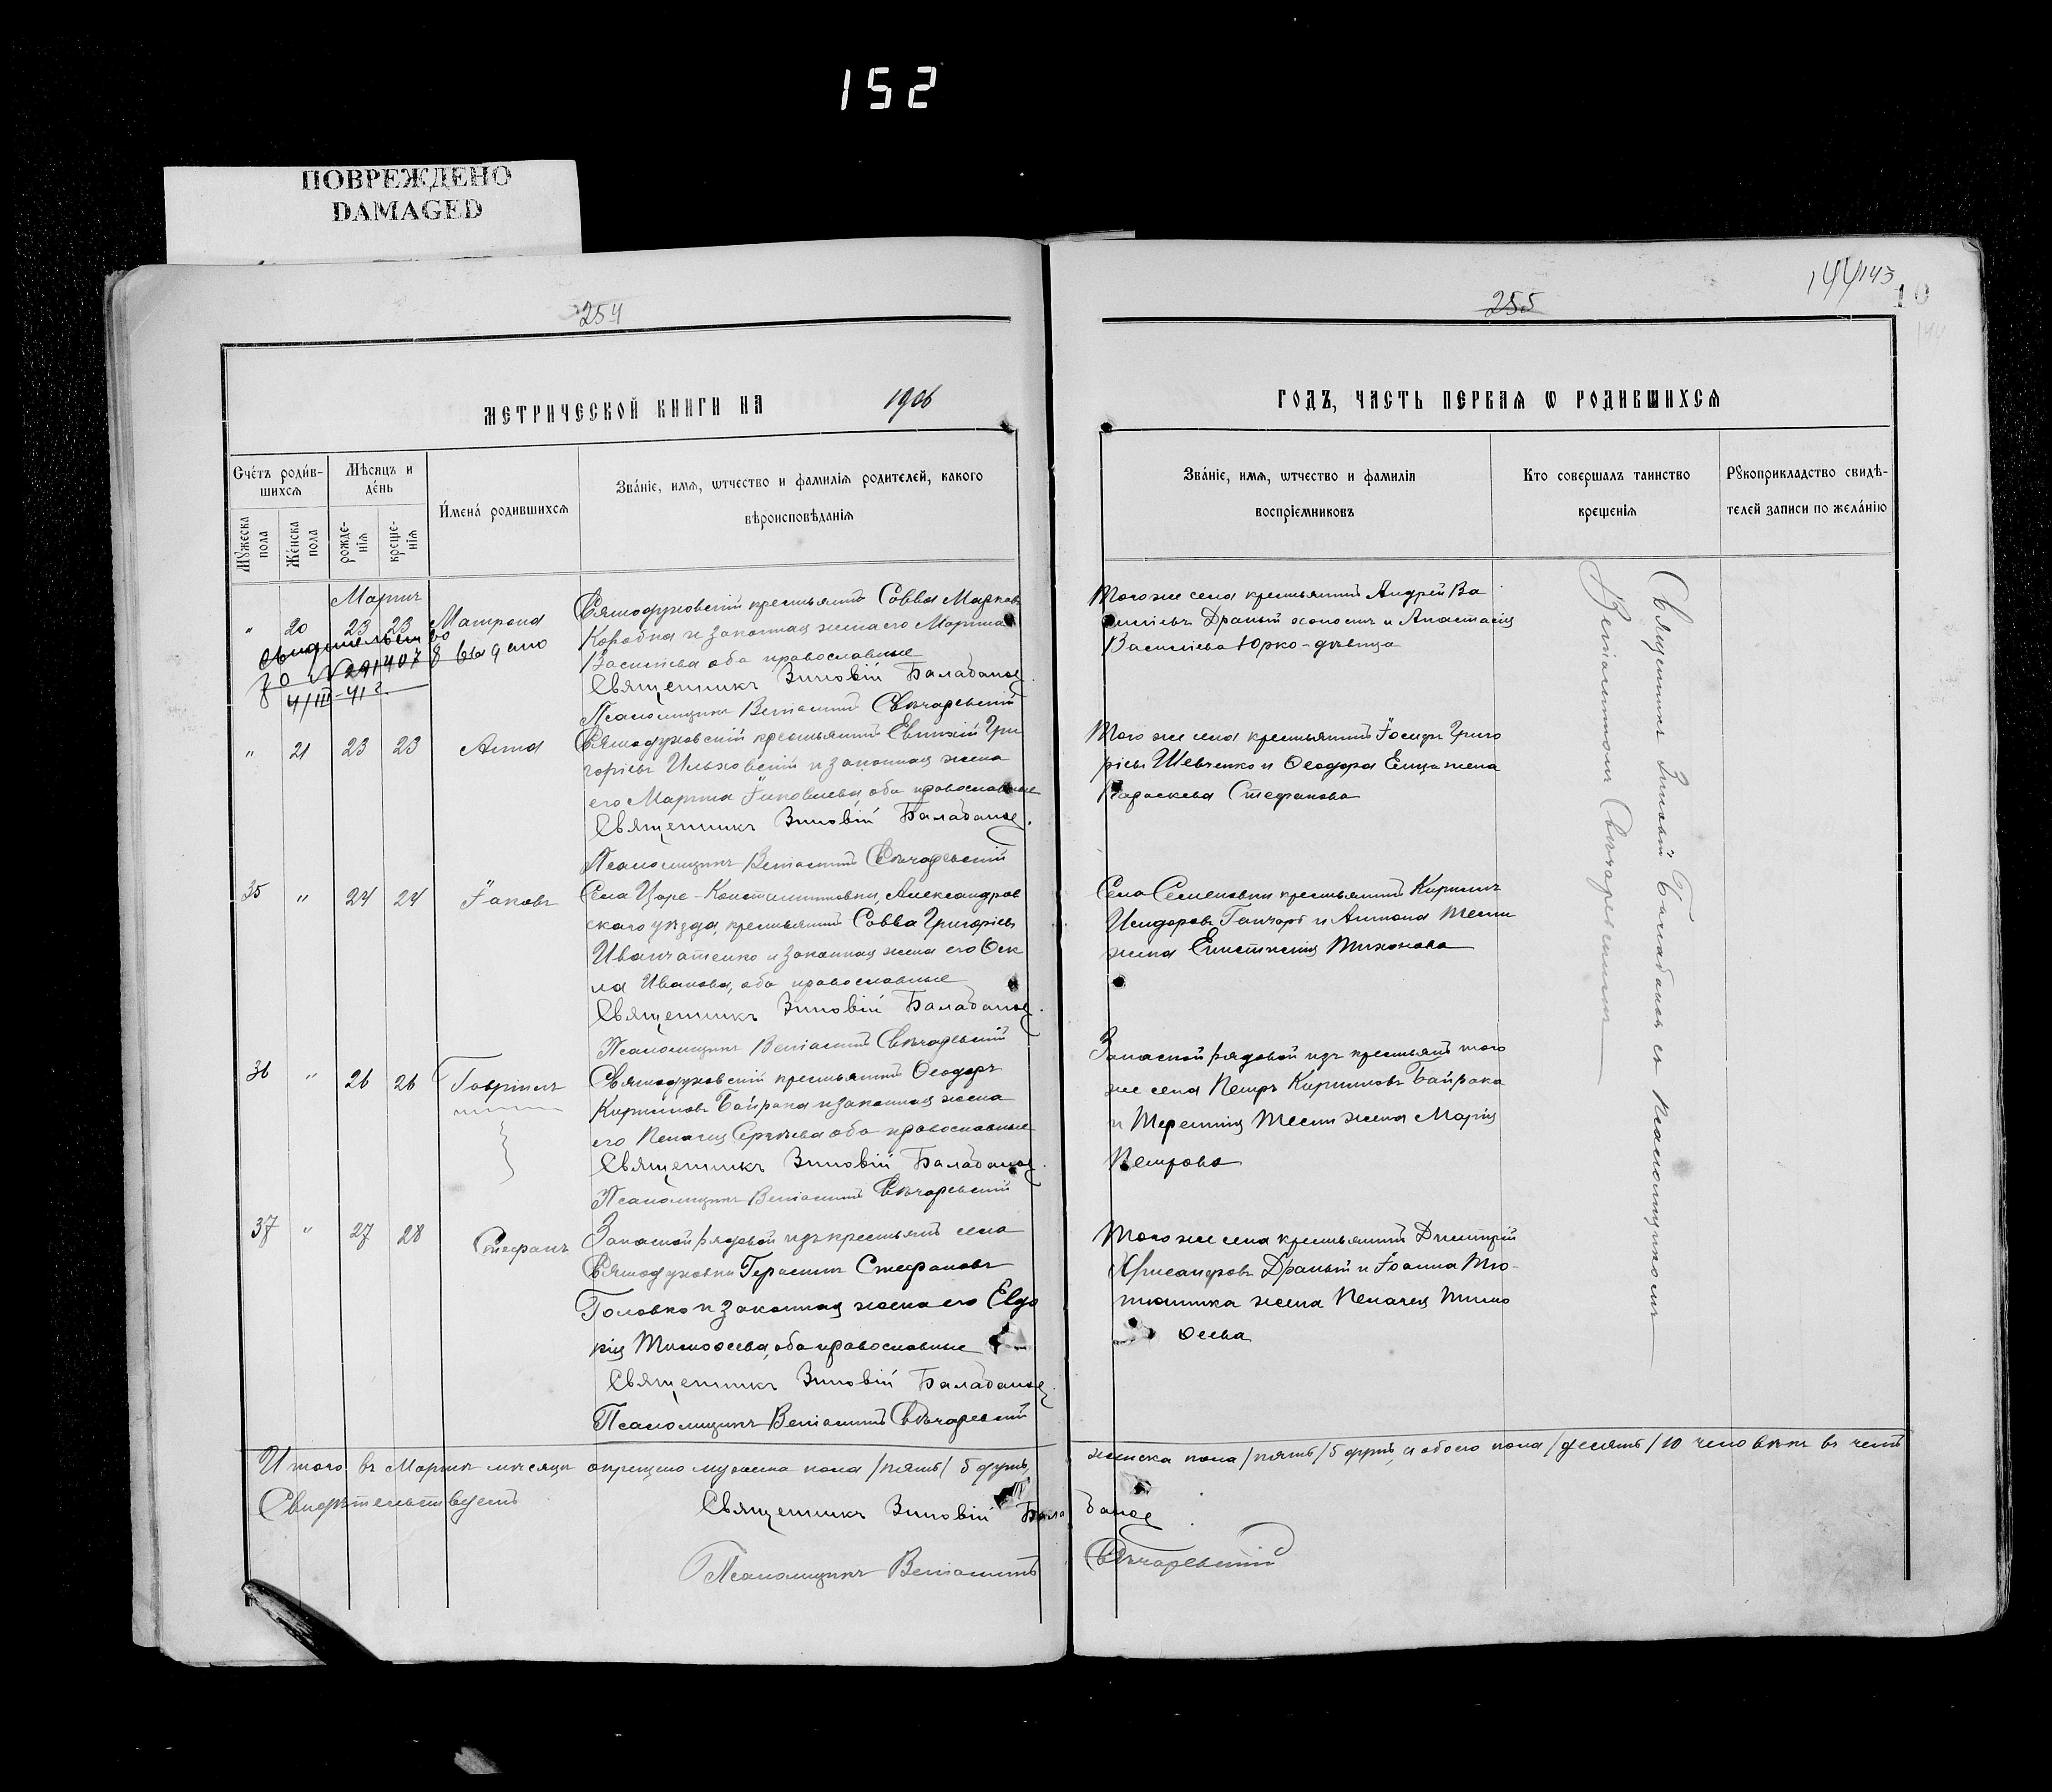 152
ПОВРЕЖДЕНО
DAMAGED
254
МЕТРИЧЕСКОЙ КНИГИ НА 1906
Счетъ родив-
шихся
Мѣсяцъ и
день
Имена родившихся
Званіе, имя, ѡтчество и фамилія родителей, какого
вѣроисповѣданія
Мужеска
пола
Женска
пола
рожде-
нія
креще-
нія
Мартъ
" 20 23 23 Матрона
Свидительство
8 выдано
4/III-41 г
Святодуховскій крестьянинъ Савва Марковъ
Коробка и законная жена его Марина
Васильева оба православные
Священникъ Зиновій Балабанов
Псаломщикъ Веніаминъ Свѣчаревскій
" 21 23 23 Анна
Святодуховскій крестьянинъ Евтихій Гри
горьевъ Ильховскій и законная жена
его Марина Іаковлева, оба православные
Священникъ Зиновій Балабанов.
Псаломщикъ Веніаминъ Свѣчаревскій
35 " 24 24 Іаковъ
Села Царе-Константиновки, Александров
скаго уѣзда, крестьянинъ Савва Григорьевъ
и законная жена его Ѳек
ла Иванова, оба православные
Священникъ Зиновій Балабанов.
Псаломщикъ Веніаминъ Свѣчаревскій
36 " 26 26 Гавріилъ
Святодуховскій крестьянинъ Ѳеодоръ
Кирилловъ Байрака и законная жена
его Пелагія Сергѣева оба православные
Священникъ Зиновій Балабанов.
Псаломщикъ Веніаминъ Свѣчаревскій
37 " 27 28 Стефанъ
Запасной рядовой изъ крестьянъ села
Святодуховки Герасимъ Стефановъ
Головко и законная жена его Евдо
кія Тимоѳеева, оба православные
Священникъ Зиновій Балабанов.
Псаломщикъ Веніаминъ Свѣчаревскій
Итого въ Мартѣ мѣсяцѣ окрещено мужеска пола /пять/ 5 душъ,
Свидѣтельствуемъ
Священникъ Зиновій Бала
Псаломщикъ Веніаминъ
255
144 143
10
144
ГОДЪ, ЧАСТЬ ПЕРВАЯ Ѡ РОДИВШИХСЯ
Званіе, имя, ѡтчество и фамилія
воспріемниковъ
Кто совершалъ таинство
крещенія
Рукоприкладство свидѣ-
телей записи по желанію
Того же села крестьянинъ Андрей Ва
сильевъ Драный холостъ и Анастасія
Васильева Юрко-дѣвица
Того же села крестьянинъ Іосифъ Григо
рьевъ Шевченко и Ѳеодора жена
Параскева Стефанова
Села Семеновки крестьянинъ Кириллъ
Исидоровъ Ганчаръ и Антона Тесли
жена Тихонова
Запасной рядовой изъ крестьянъ того
же села Петръ Кирилловъ Байрака
и Терентія Тесли жена Марія
Петрова
Того же села крестьянинъ Димитрій
Драный и Іоанна Тю-
тюнника жена Пелагея Тимо
ѳеева
Священникъ Зиновій Балабановъ съ псаломщикомъ
Веніаминомъ Свѣчаревскимъ
женска пола /пять/ 5 душъ, а обоего пола /десять/ 10 человѣкъ въ чемъ
банов
Свѣчаревскій